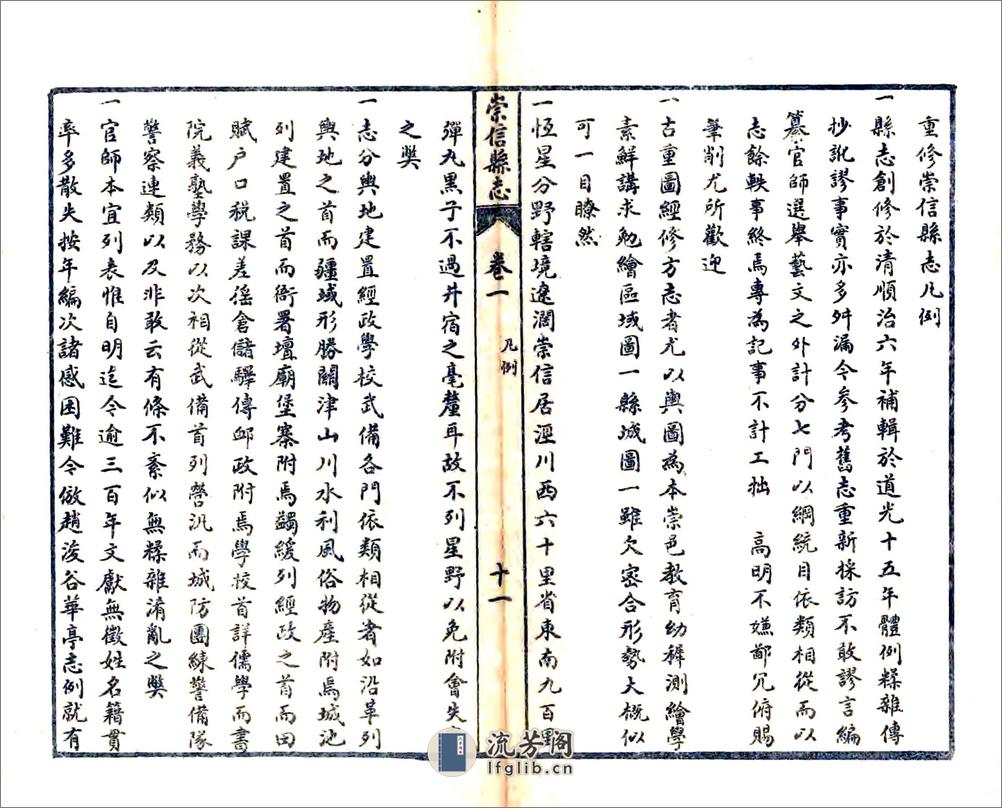 重修崇信縣志凡例
一縣志創修於清順治六年補輯於道光十五年體例糅雜傳
抄訛謬事實亦多舛漏今參考舊志重新採訪不敢謬言編
纂官師選舉藝文之外計分七門以綱統目依類相從而以
志餘軼事終焉專為記事不計工拙 高明不嫌鄙冗俯賜
筆削尤所歡迎
一古重圖經修方志者尤以輿圖為本崇邑教育幼穉測繪學
素鮮講求勉繪區域圖一縣城圖一雖欠密合形勢大概似
可一目瞭然
一恆星分野轄境遼濶崇信居涇川西六十里省東南九百野
崇信縣志
卷一
凡例
十一
彈丸黑子不過井宿之毫釐耳故不列星野以免附會失
之獘
一志分輿地建置經政學校武備各門依類相從者如沿革列
輿地之首而疆域形勝關津山川水利風俗物產附焉城池
列建置之首而衙署壇廟堡寨附焉蠲緩列經政之首而田
賦户口稅課差徭倉儲驛傳郵政附焉學校首詳儒學而書
院義塾學務以次相從武備首列營汛而城防團練警備隊
警察連類以及非敢云有條不紊似無糅雜淆亂之獘
一官師本宜列表惟自明迄今逾三百年文獻無徵姓名籍貫
率多散失按年編次諸感困難今倣趙浚谷華亭志例就有
流芳閣
lfglib.cn